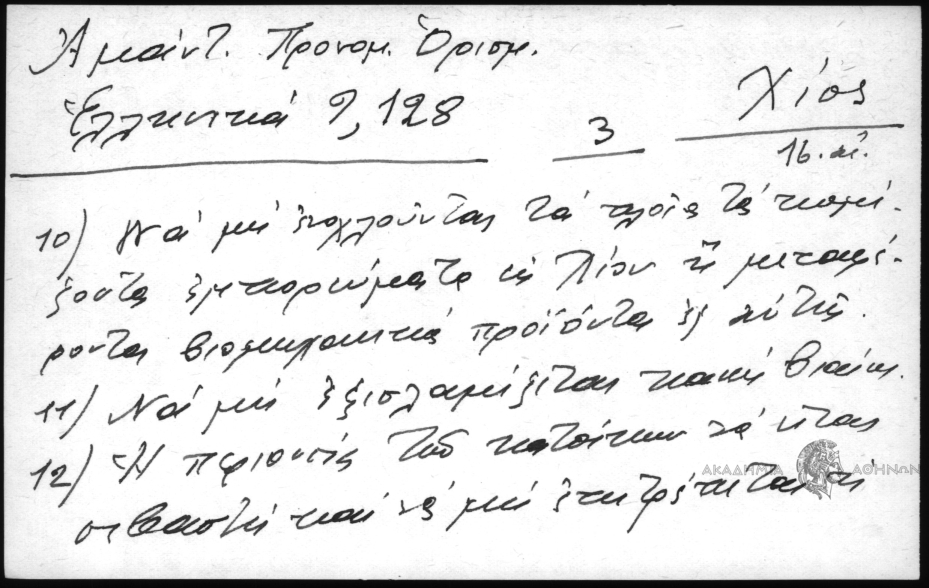 Ἀμάντ. Προνομ. Ὁρισμ.
Ἑλληνικά 9, 128
3
Χίος
16. αἰ.
10) Νά μή ἐνοχλοῦνται τά πλοῖα τά κομί-
ζοντα ἐμπορεύματα εἰς Χίον ἤ μεταφέ-
ροντα βιομηχανικά προϊόντα ἐξ αὐτῆς.
11) Νά μή ἐξισλαμίζεται κανείς βιαίως.
12) Ἡ περιουσία τῶν κατοίκων νά εἶναι
σεβαστή καί νά μή ἐπιτρέπεται ἡ
ΑΚΑΔΗΜΙΑ ΑΘΗΝΩΝ